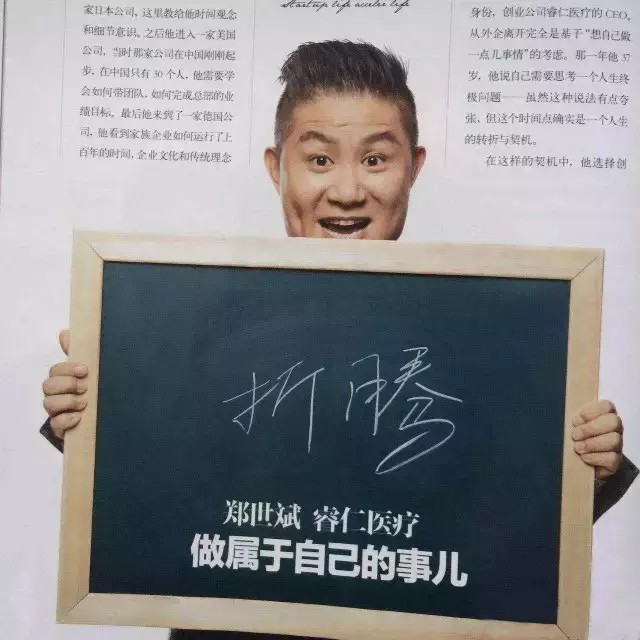 家日本公司，这里教给他时间观念
和细节意识。之后他进入一家美国
公司，当时那家公司在中国刚刚起
步，在中国只有 30 个人，他需要学
会如何带团队，如何完成总部的业
绩目标。最后他来到了一家德国公
司，他看到家族企业如何运行了上
百年的时间，企业文化和传统理念
Startup life accelerate life
身份，创业公司睿仁医疗的 CEO。
从外企离开完全是基于“想自己做
一点儿事情”的考虑。那一年他 37
岁，他说自己需要思考一个人生终
极问题——虽然这种说法有点夸
张，但这个时间点确实是一个人生
的转折与契机。
在这样的契机中，他选择创
折腾
郑世斌 睿仁医疗
做属于自己的事儿